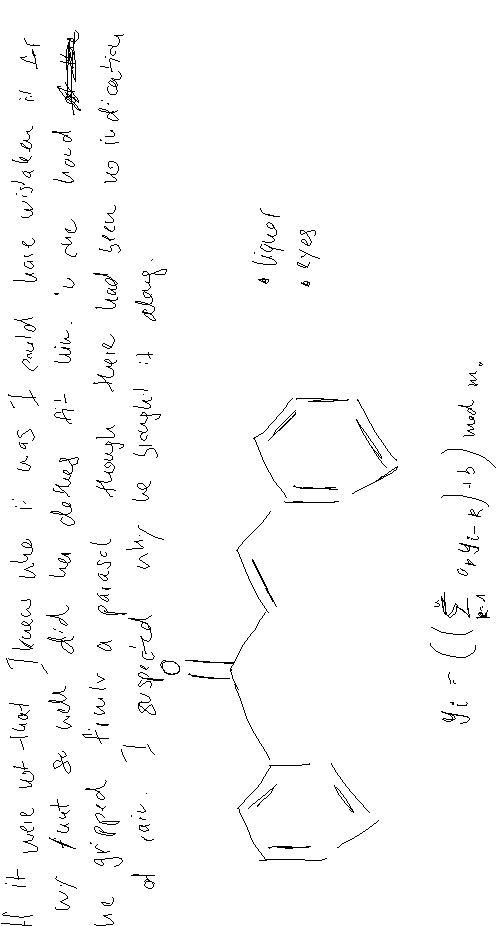 If it were not that I knew who it was I could have mistaken it for
my aunt so well did her clothes fit him. In one hand
he gripped firmly a parasol though there had been no indication
of rain. I suspected why he brought it along.
• liquor
• eyes
O
y_i = ((∑_{k=1}^{n} a_k y_{i-k}) + b) mod m.